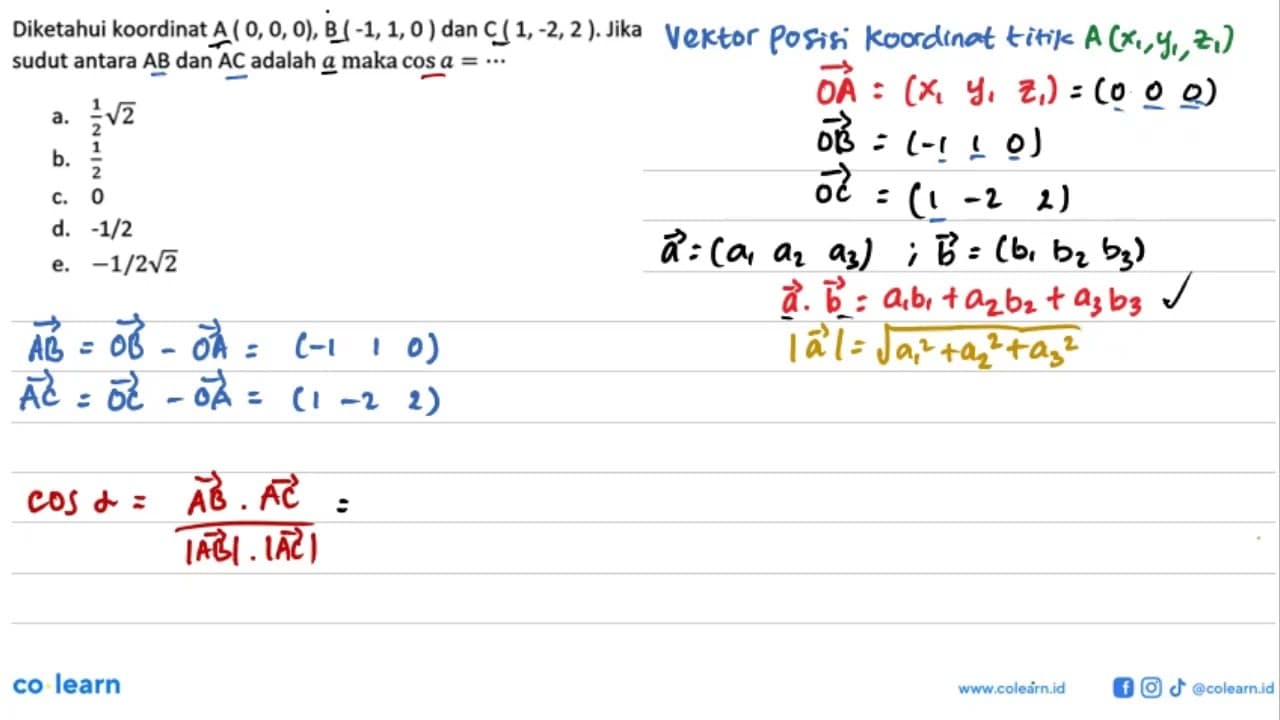 Diketahui koordinat A ( 0, 0, 0), B ( -1, 1, 0 ) dan C ( 1, -2, 2 ). Jika
sudut antara AB dan AC adalah a maka cos a = ⋯
a. 1/2 √2
b. 1/2
c. 0
d. -1/2
e. −1/2√2
Vektor Posisi koordinat titik A(x₁, y₁, z₁)
→OA = (x₁ y₁ z₁) = (0 0 0)
→OB = (-1 1 0)
→OC = (1 -2 2)
→a = (a₁ a₂ a₃) ; →b = (b₁ b₂ b₃)
→a . →b = a₁b₁ + a₂b₂ + a₃b₃ ✓
|→a| = √(a₁² + a₂² + a₃²)
→AB = →OB - →OA = (-1 1 0)
→AC = →OC - →OA = (1 -2 2)
cos α = (→AB . →AC) / (|→AB| . |→AC|) =
co learn
www.colearn.id
@colearn.id